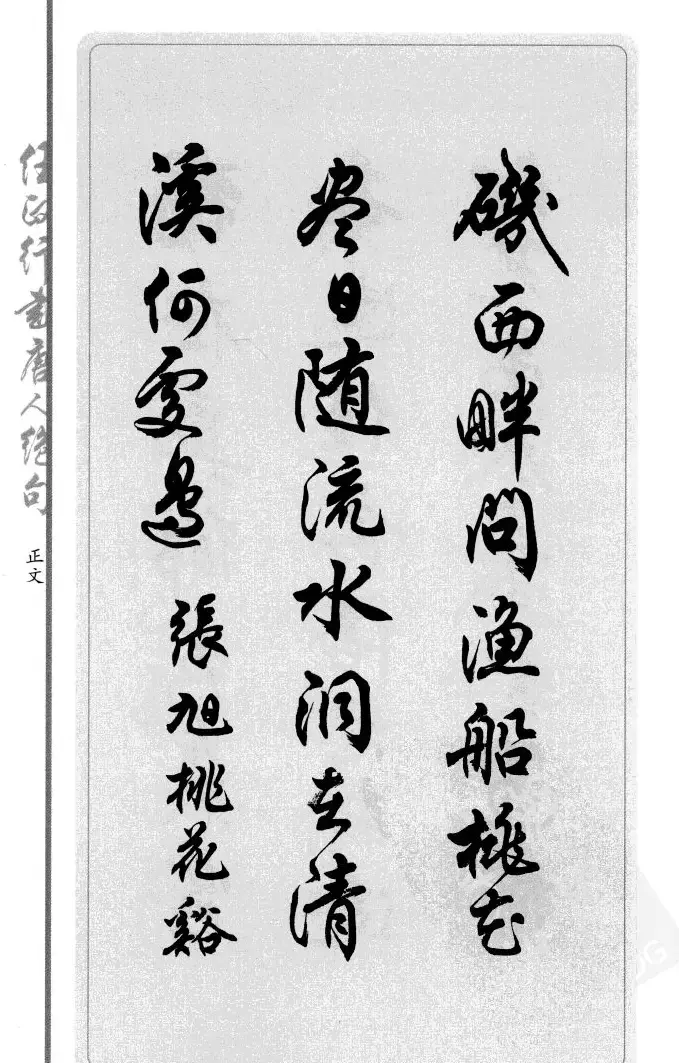 磯西畔問漁船桃花
尽日随流水洞在清
溪何處邊 張旭桃花谿
任政行書唐人絕句
正文